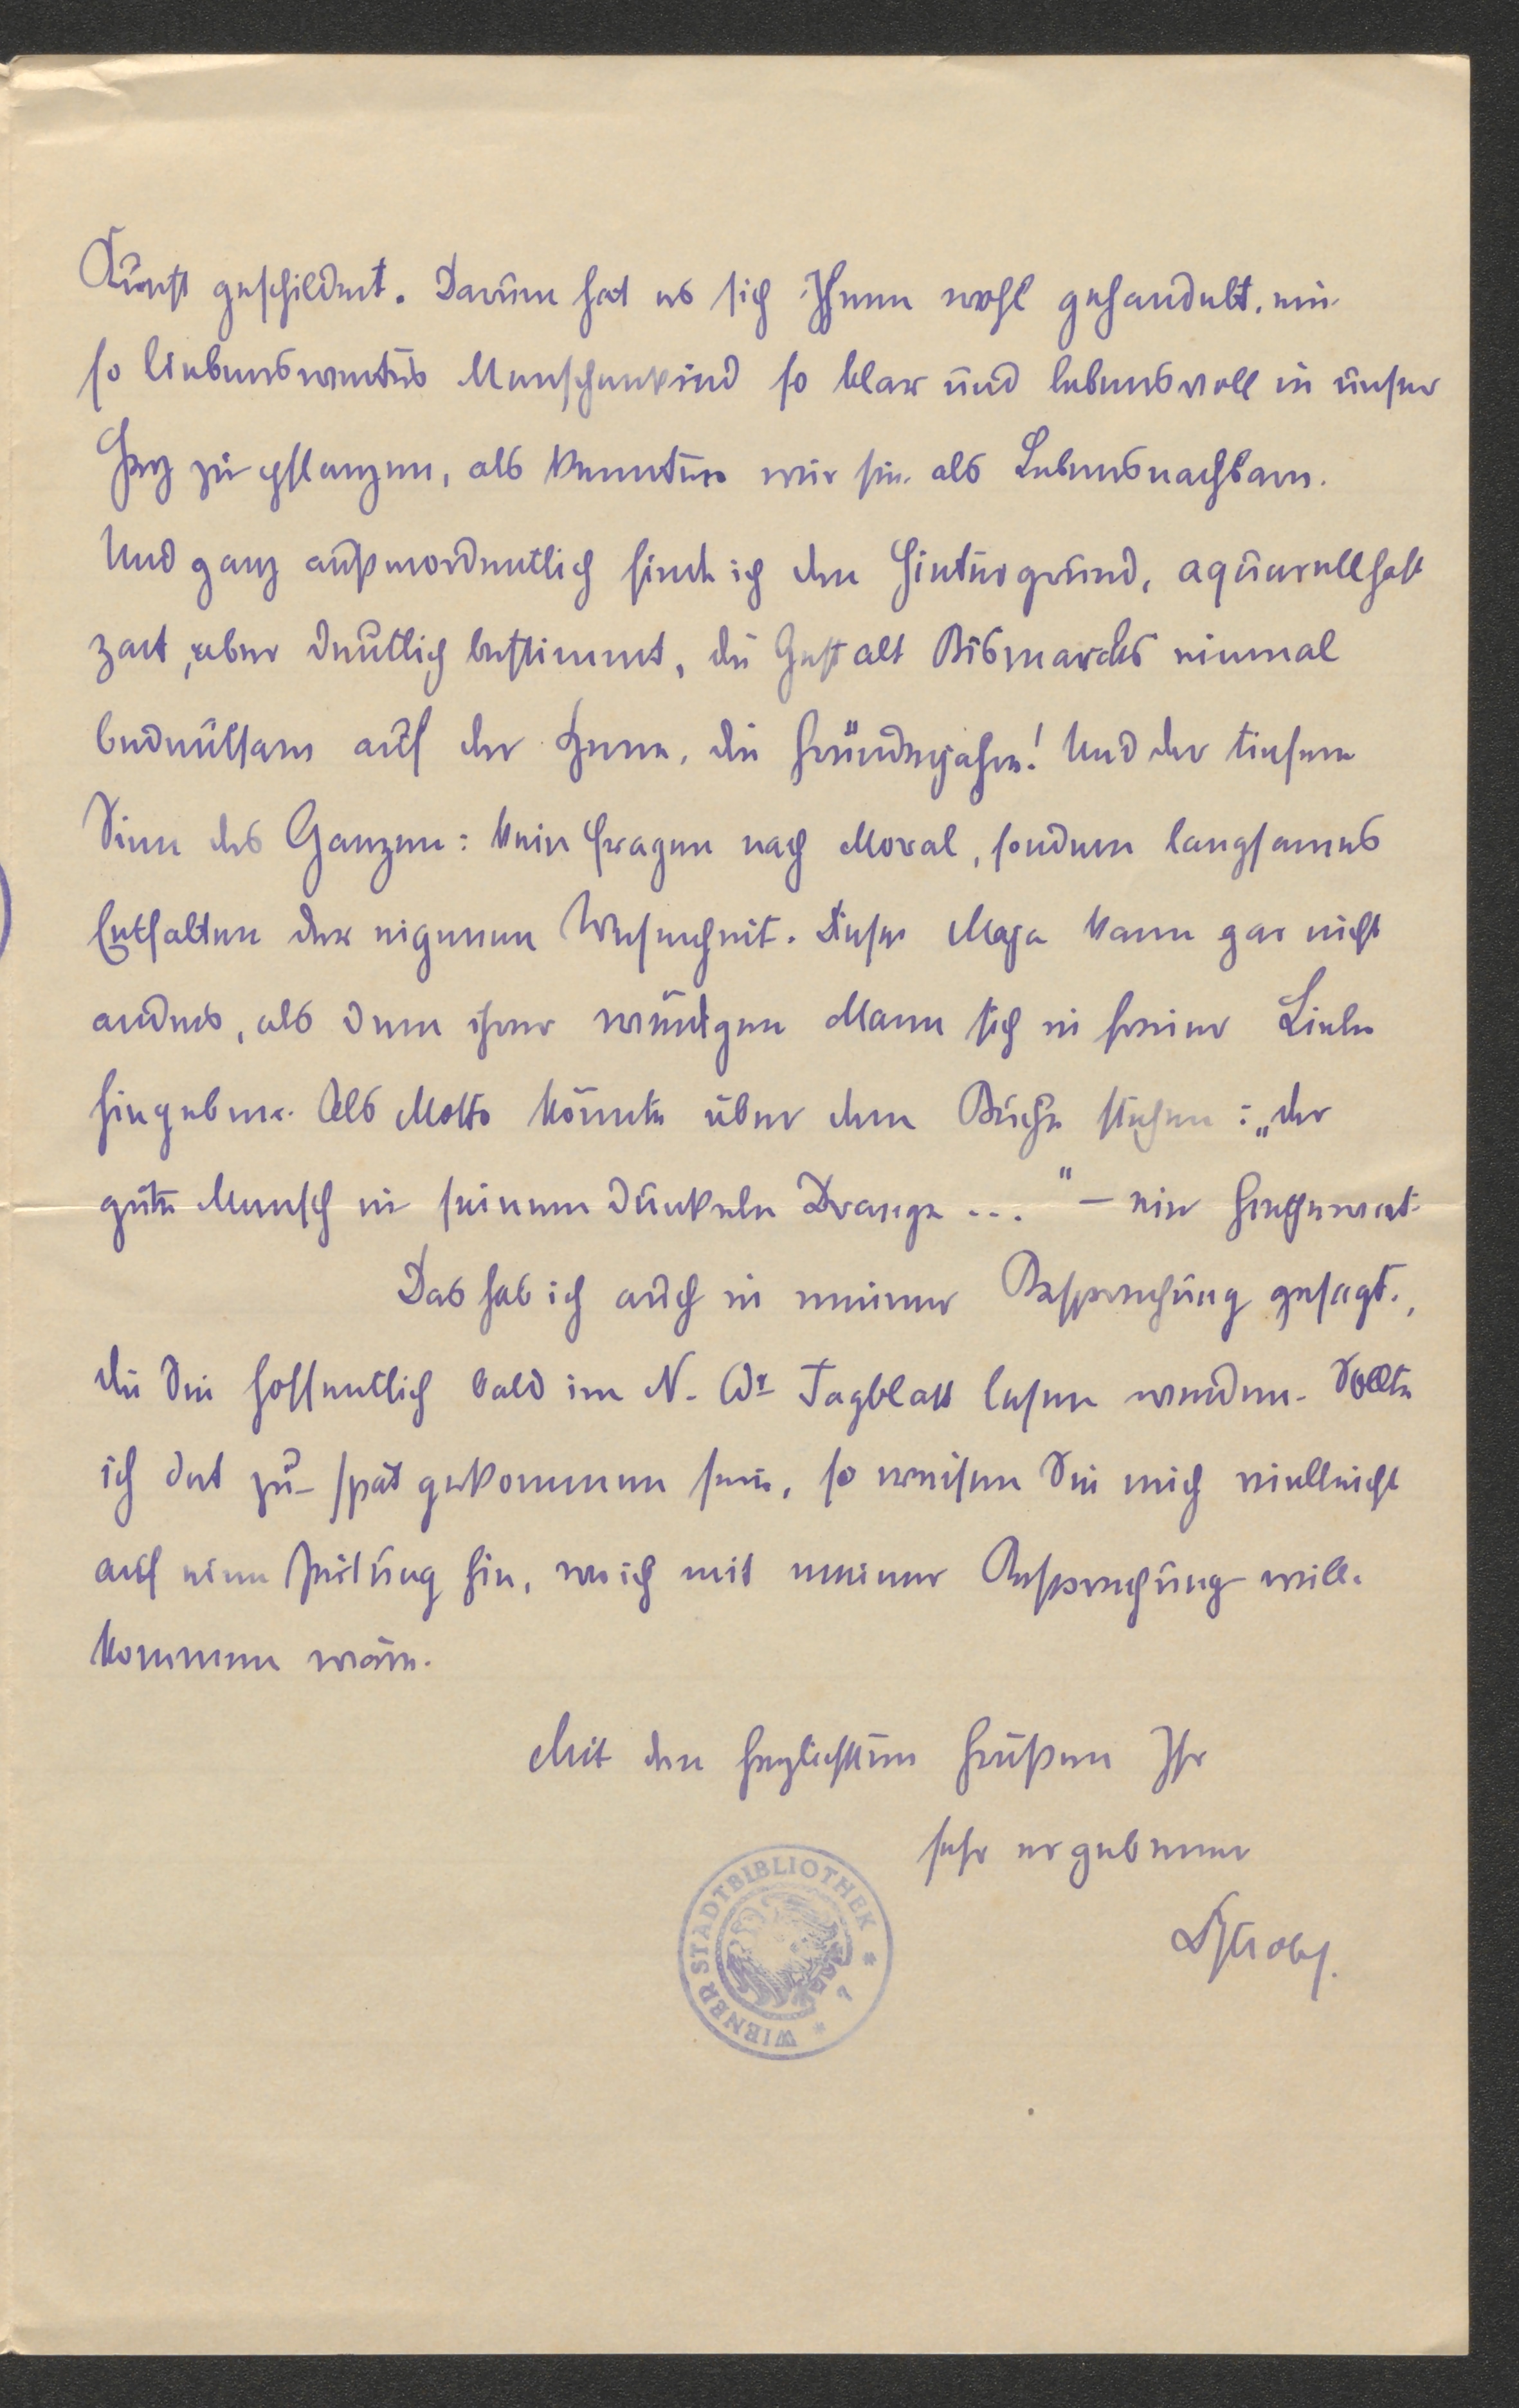 Kunst geschildert. Darum hat es sich Ihnen wohl gehandelt, ein
so liebenswertes Menschenkind so klar und lebensvoll in unser
Herz zu pflanzen, als kennten wir sie als Lebensnachbarn.
Und ganz außerordentlich finde ich den Hintergrund, aquarellhaft
zart, aber deutlich bestimmt, die Gestalt Bismarcks einmal
bedeutsam auf der Szene, die Gründerjahre! Und der tiefere
Sinn des Ganzen: kein Fragen nach Moral, sondern langsames
Entfalten der eigenen Wesenheit. Diese Maja kann gar nicht
anders, als dem ihrer würdigen Mann sich in freier Liebe
hingeben. Als Motto könnte über dem Buche stehen: „der
gute Mensch in seinem dunkeln Drange ..." – ein
Das hab ich auch in meiner Besprechung gesagt,
die Sie hoffentlich bald im N. Wr Tagblatt lesen werden. Sollte
ich dort zu spät gekommen sein, so weisen Sie mich vielleicht
auf eine Zeitung hin, wo ich mit meiner Besprechung will-
kommen wäre.
Mit den herzlichsten Grüßen Ihr
sehr ergebener
Strobl.
WIENER STADTBIBLIOTHEK